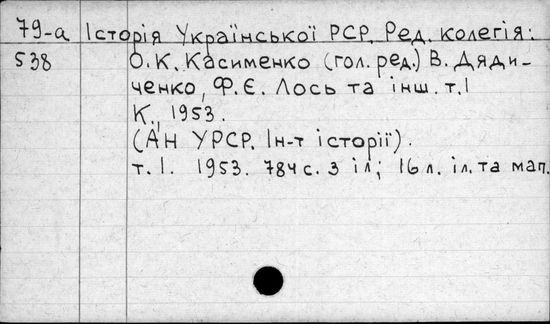 79-а Історія Української РСР. Ред. колегія:
538 О.К. Касименко (гол. ред.) В. Дяди-
ченко, Ф.Є. Лось та інш. т. I
К., 1953.
(АН УРСР. Ін-т історії).
т. I. 1953. 784 с. з іл; 16 л. іл. та мап.